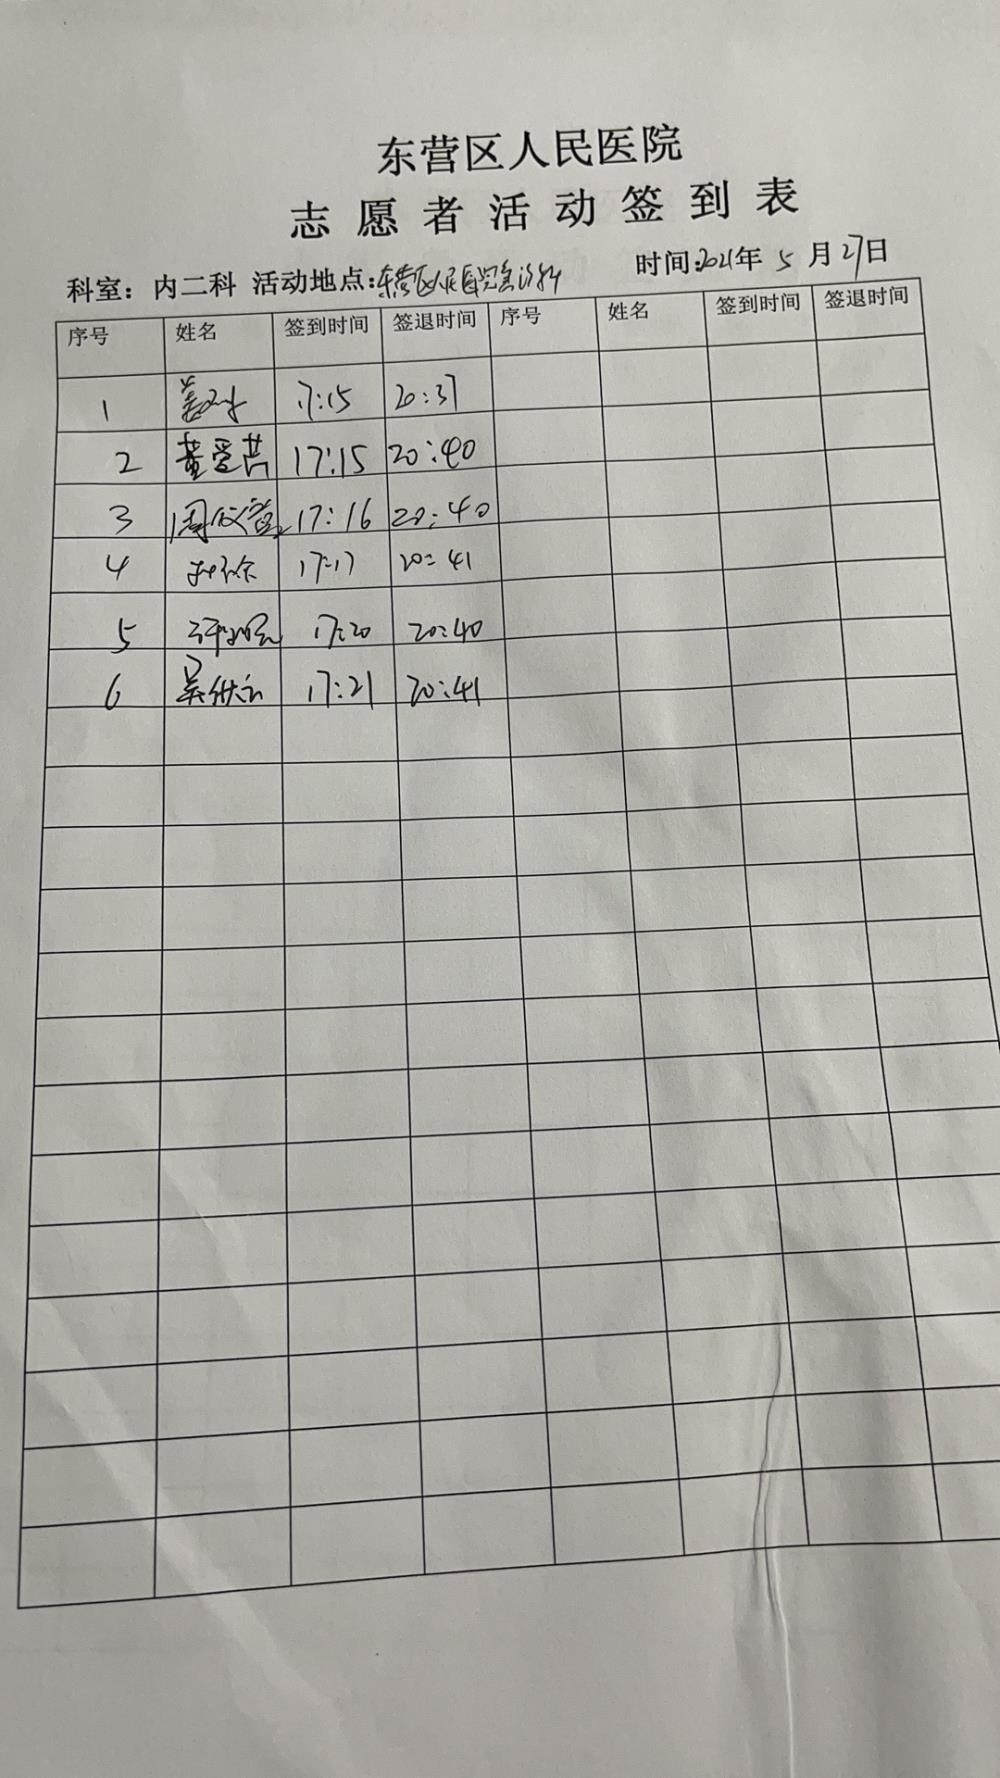 东营区人民医院
志愿者活动签到表
科室：内二科 活动地点：东营区人民医院急诊科 时间：2021年5月27日
序号 姓名 签到时间 签退时间 序号 姓名 签到时间 签退时间
1 姜 17:15 20:37
2 董爱芳 17:15 20:40
3 周 17:16 20:40
4 17:17 20:41
5 17:20 20:40
6 吴 17:21 20:41